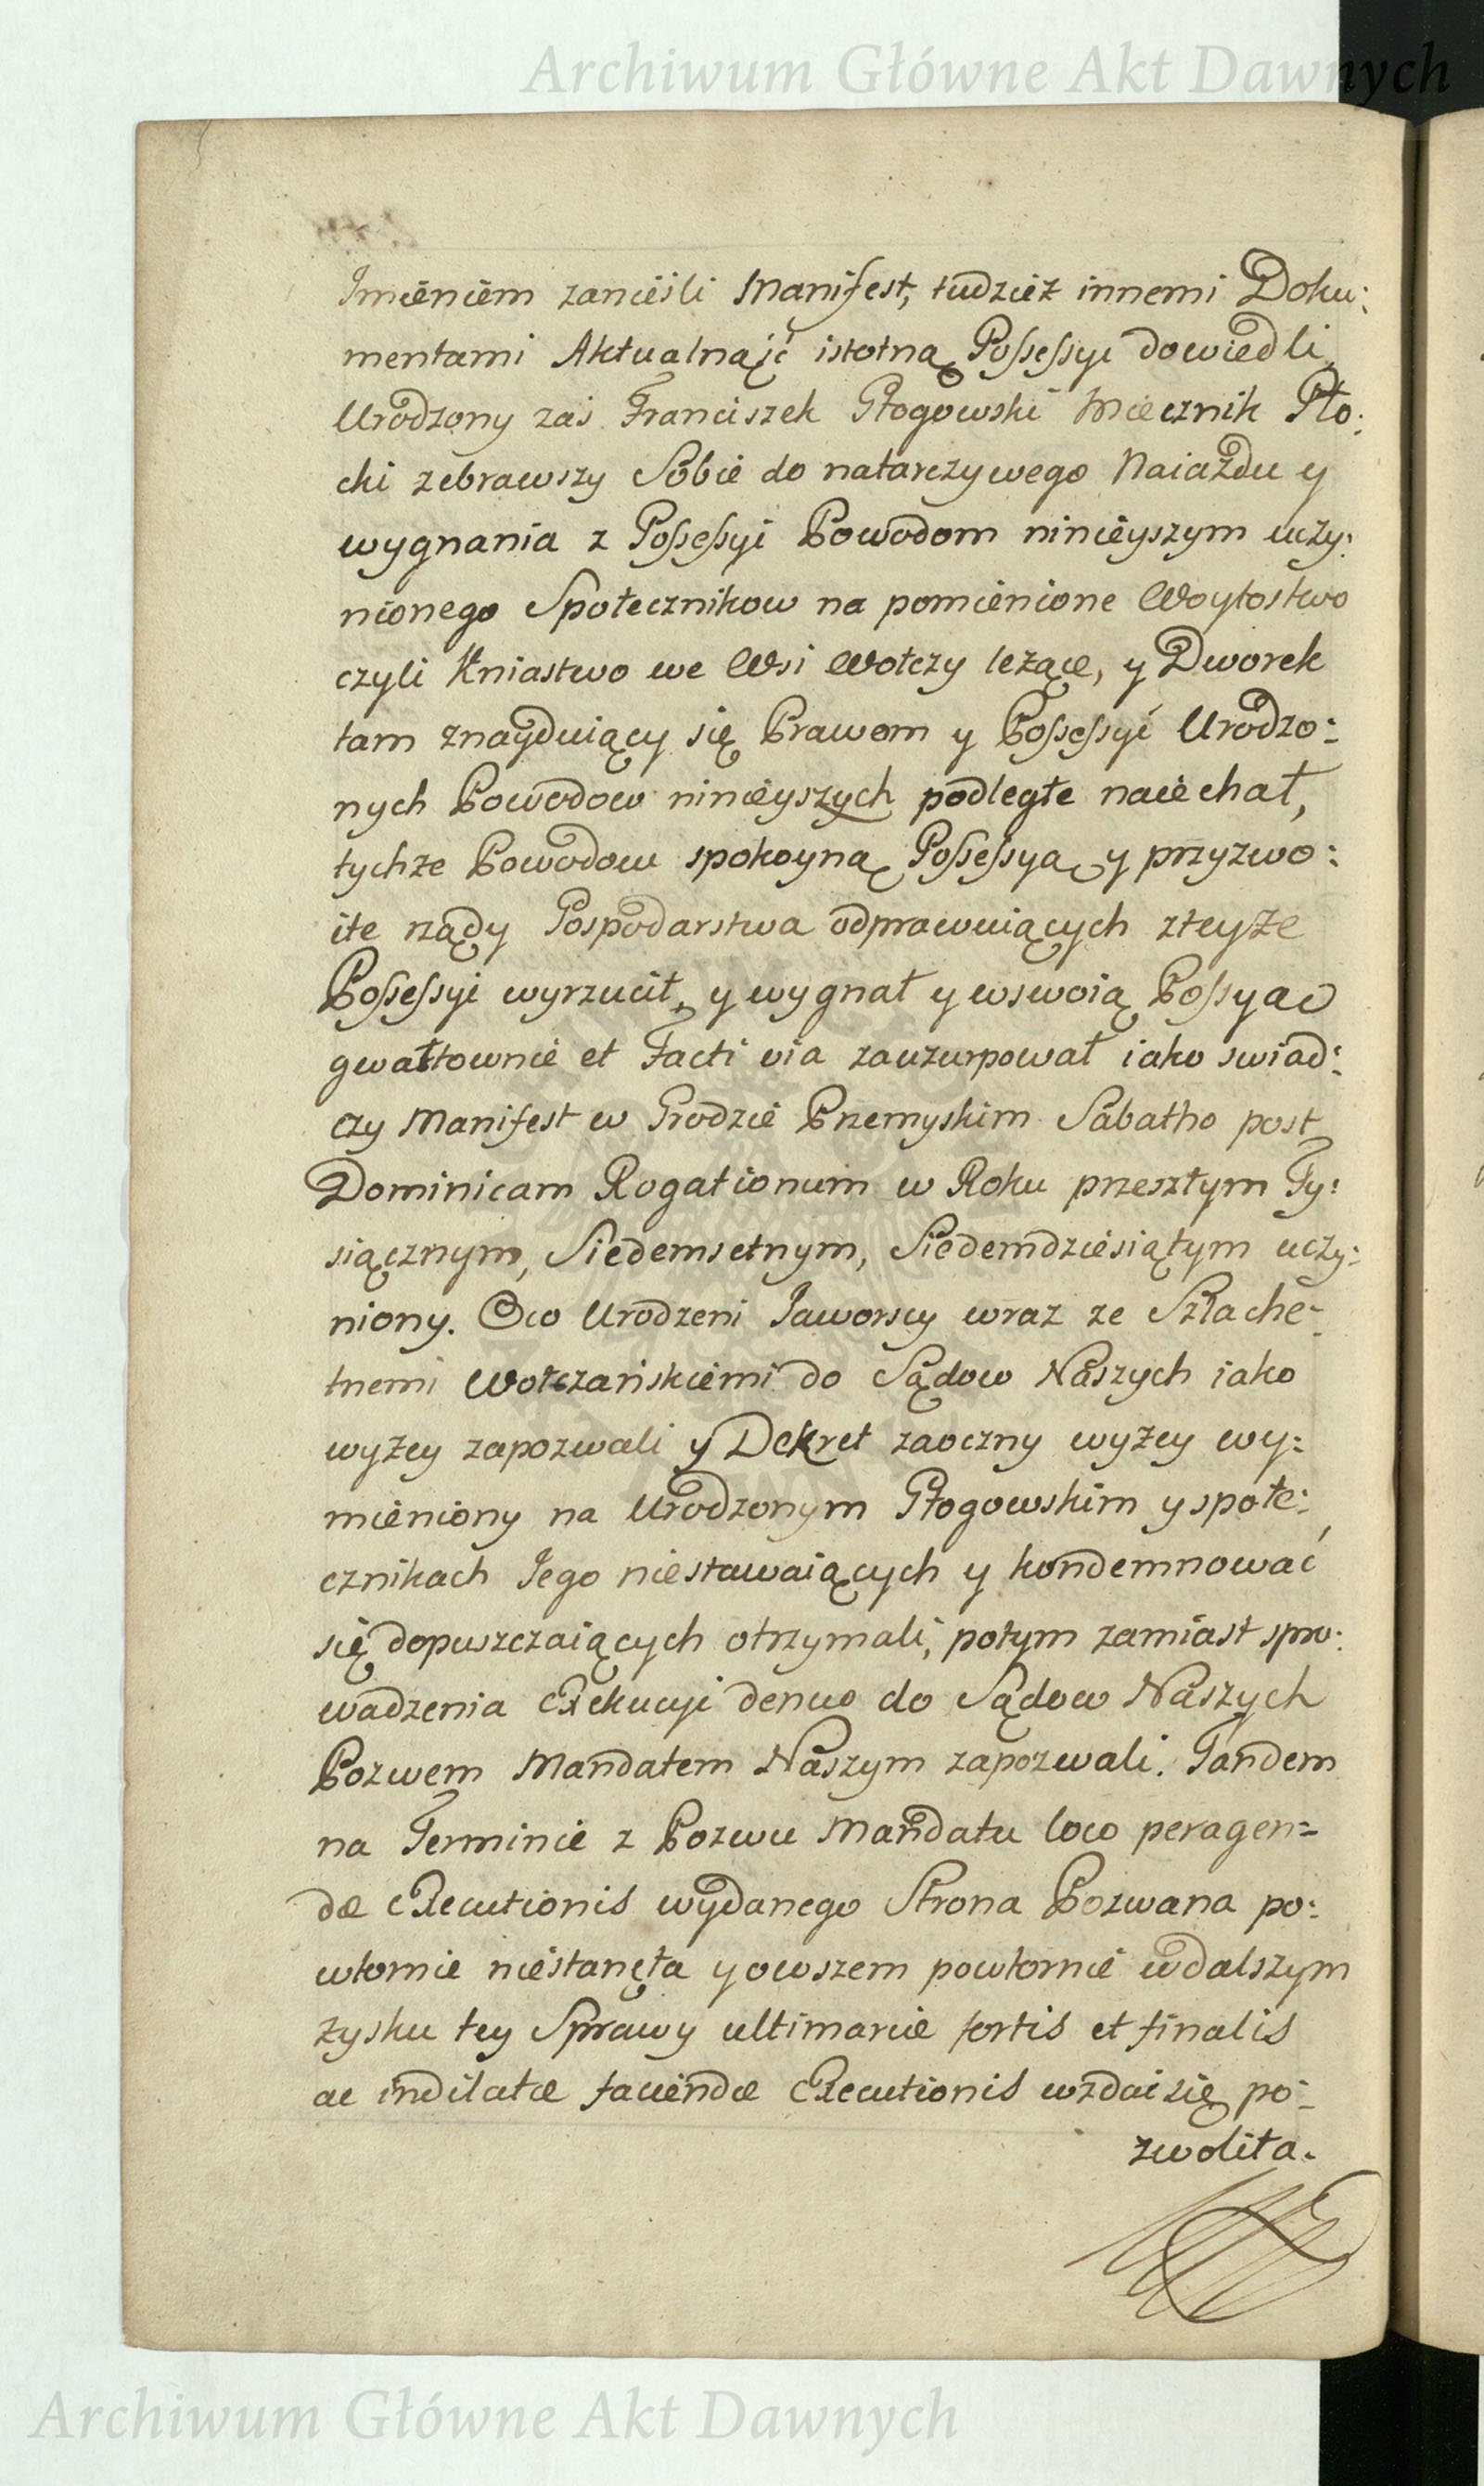 Archiwum Główne Akt Dawnych
Imieniem zanieśli Manifest, tudzież innemi Doku:
mentami Aktualnąść istotną Possessyi dowiedli,
Urodzony zaś Franciszek Głogowski Miecznik Pło:
cki zebrawszy Sobie do natarczywego Naiazdu y
wygnania z Possessyi Powodom ninieyszym uczy:
nionego Społecznikow na pomienione Woytostwo
czyli Kniastwo we Wsi Wołczy leżące, y Dworek
tam znayduiący się Prawom y Possessyi Urodzo:
nych Powodow ninieyszych podległe naiechał,
tychże Powodow spokoyną Possessyą y przyzwo:
ite rządy Gospodarstwa odprawuiących zteyże
Possessyi wyrzucił, y wygnał y wswoią Possyą
gwałtownie et Facti via zauzurpował iako swiad:
czy Manifest w Grodzie Przemyskim Sabatho post
Dominicam Rogationum w Roku przeszłym Ty:
siącznym, Siedemsetnym, Siedemdziesiątym uczy:
niony. Oco Urodzeni Jaworscy wraz ze Szlache:
tnemi Wołczańskiemi do Sądow Naszych iako
wyżey zapozwali y Dekret zaoczny wyżey wy:
mieniony na Urodzonym Głogowskim y społe:
cznikach Jego niestawaiących y kondemnować
się dopuszczaiących otrzymali, potym zamiast spro:
wadzenia Exekucyi denuo do Sądow Naszych
Pozwem Mandatem Naszym zapozwali. Tandem
na Terminie z Pozwu Mandatu loco peragen=
dæ Executionis wydanego Strona Pozwana po:
wtornie niestanęła y owszem powtornie wdalszym
zysku tey Sprawy ultimarie fortis et finalis
ac indilatæ faciendæ Executionis wzdaisię po:
zwoliła.
Archiwum Główne Akt Dawnych